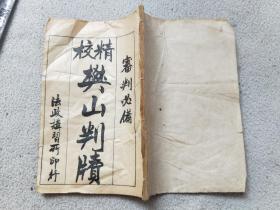 審判必備
精校
樊山判牘
法政講習所印行